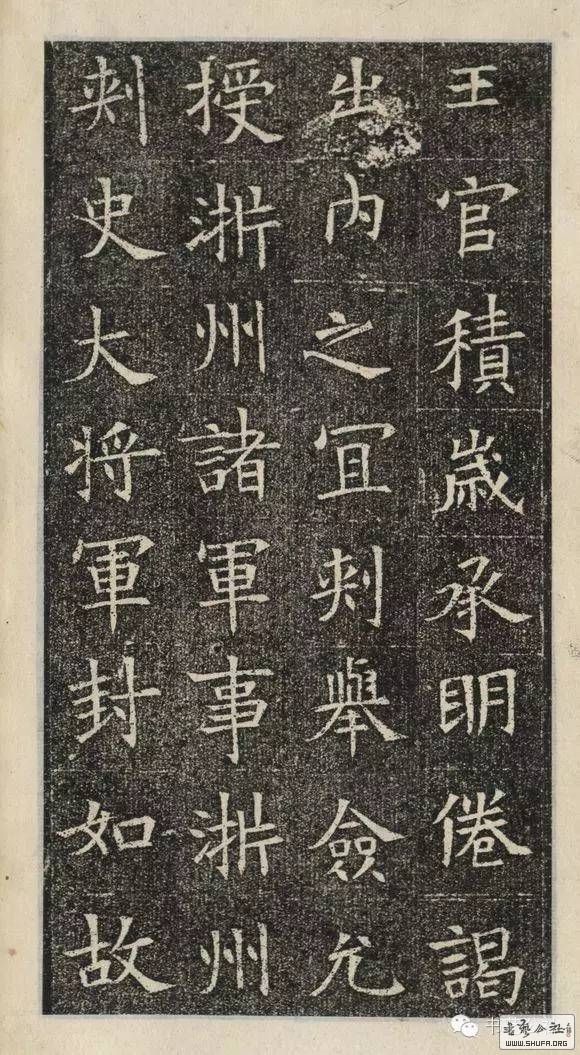 王官積歳承眀倦謁
出内之冝刾舉僉允
授淅州諸軍事淅州
刾史大将軍封如故
书艺公社
WWW.SHUFA.ORG